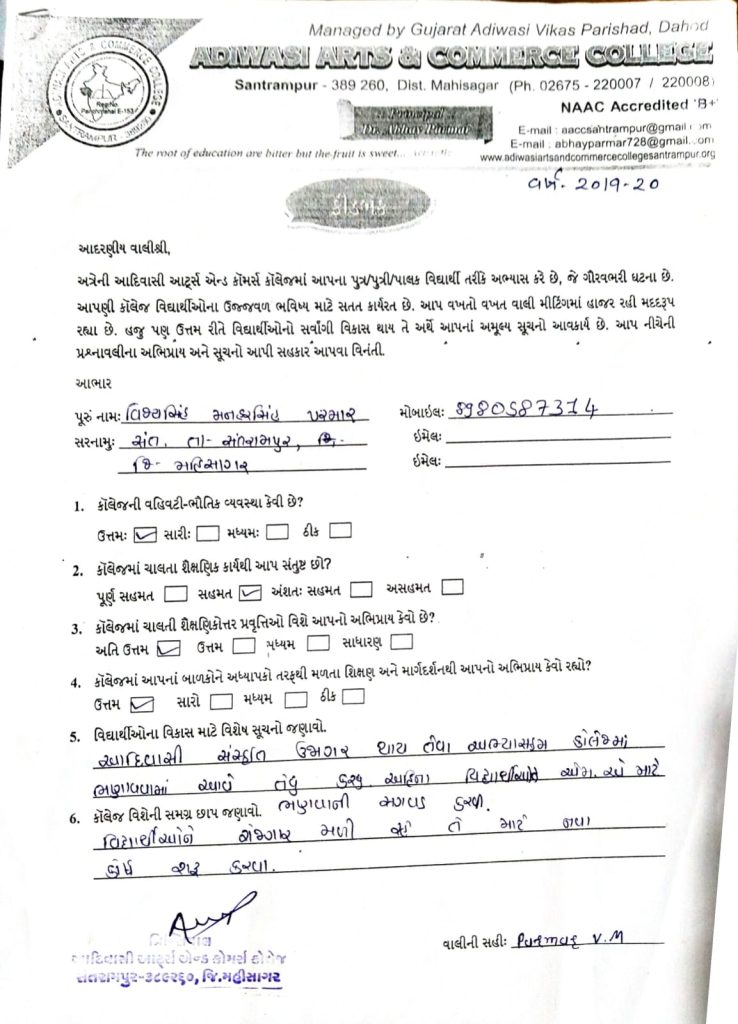 Managed by Gujarat Adiwasi Vikas Parishad, Dahod
ADIWASI ARTS & COMMERCE COLLEGE
Santrampur - 389 260, Dist. Mahisagar (Ph. 02675 - 220007 / 220008)
NAAC Accredited 'B+'
:: Principal ::
Dr. Abhay Parmar
E-mail : aaccsantrampur@gmail.com
E-mail : abhayparmar728@gmail.com
www.adiwasiartsandcommercecollegesantrampur.org
The root of education are bitter but the fruit is sweet...
વર્ષ- 2019-20
ફીડબેક
આદરણીય વાલીશ્રી,
અત્રેની આદિવાસી આર્ટ્સ એન્ડ કૉમર્સ કૉલેજમાં આપના પુત્ર/પુત્રી/પાલક વિદ્યાર્થી તરીકે અભ્યાસ કરે છે, જે ગૌરવભરી ઘટના છે.
આપણી કૉલેજ વિદ્યાર્થીઓના ઉજ્જવળ ભવિષ્ય માટે સતત કાર્યરત છે. આપ વખતો વખત વાલી મીટિંગમાં હાજર રહી મદદરૂપ
રહ્યા છે. હજુ પણ ઉત્તમ રીતે વિદ્યાર્થીઓનો સર્વાંગી વિકાસ થાય તે અર્થે આપનાં અમૂલ્ય સૂચનો આવકાર્ય છે. આપ નીચેની
પ્રશ્નાવલીના અભિપ્રાય અને સૂચનો આપી સહકાર આપવા વિનંતી.
આભાર
પૂરું નામઃ વિજયસિંહ મનહરસિંહ પરમાર મોબાઇલઃ 8980587314
સરનામુઃ સંત. તા- સંતરામપુર, ઇમેલઃ
જિ- મહિસાગર ઇમેલઃ
1. કૉલેજની વહિવટી-ભૌતિક વ્યવસ્થા કેવી છે?
ઉત્તમઃ ✓ સારીઃ મધ્યમઃ ઠીક
2. કૉલેજમાં ચાલતા શૈક્ષણિક કાર્યથી આપ સંતુષ્ટ છો?
પૂર્ણ સહમત સહમત ✓ અંશતઃ સહમત અસહમત
3. કૉલેજમાં ચાલતી શૈક્ષણિકોત્તર પ્રવૃત્તિઓ વિશે આપનો અભિપ્રાય કેવો છે?
અતિ ઉત્તમ ✓ ઉત્તમ મધ્યમ સાધારણ
4. કૉલેજમાં આપનાં બાળકોને અધ્યાપકો તરફથી મળતા શિક્ષણ અને માર્ગદર્શનથી આપનો અભિપ્રાય કેવો રહ્યો?
ઉત્તમ ✓ સારો મધ્યમ ઠીક
5. વિદ્યાર્થીઓના વિકાસ માટે વિશેષ સૂચનો જણાવો.
આદિવાસી સંસ્કૃતિ ઉજાગર થાય તેવા અભ્યાસક્રમ કોલેજમાં
ભણાવવામાં આવે તેવું કરવું. અહિના વિદ્યાર્થીઓને એમ. એ માટે
ભણવાની સગવડ કરવી.
6. કૉલેજ વિશેની સમગ્ર છાપ જણાવો.
વિદ્યાર્થીઓને રોજગાર મળી રહે તે માટે નવા
કોર્ષ શરૂ કરવા.
વાલીની સહીઃ Parmar V.M
આદિવાસી આર્ટ્સ એન્ડ કોમર્સ કોલેજ
સંતરામપુર-૩૮૯૨૬૦, જિ.મહીસાગર